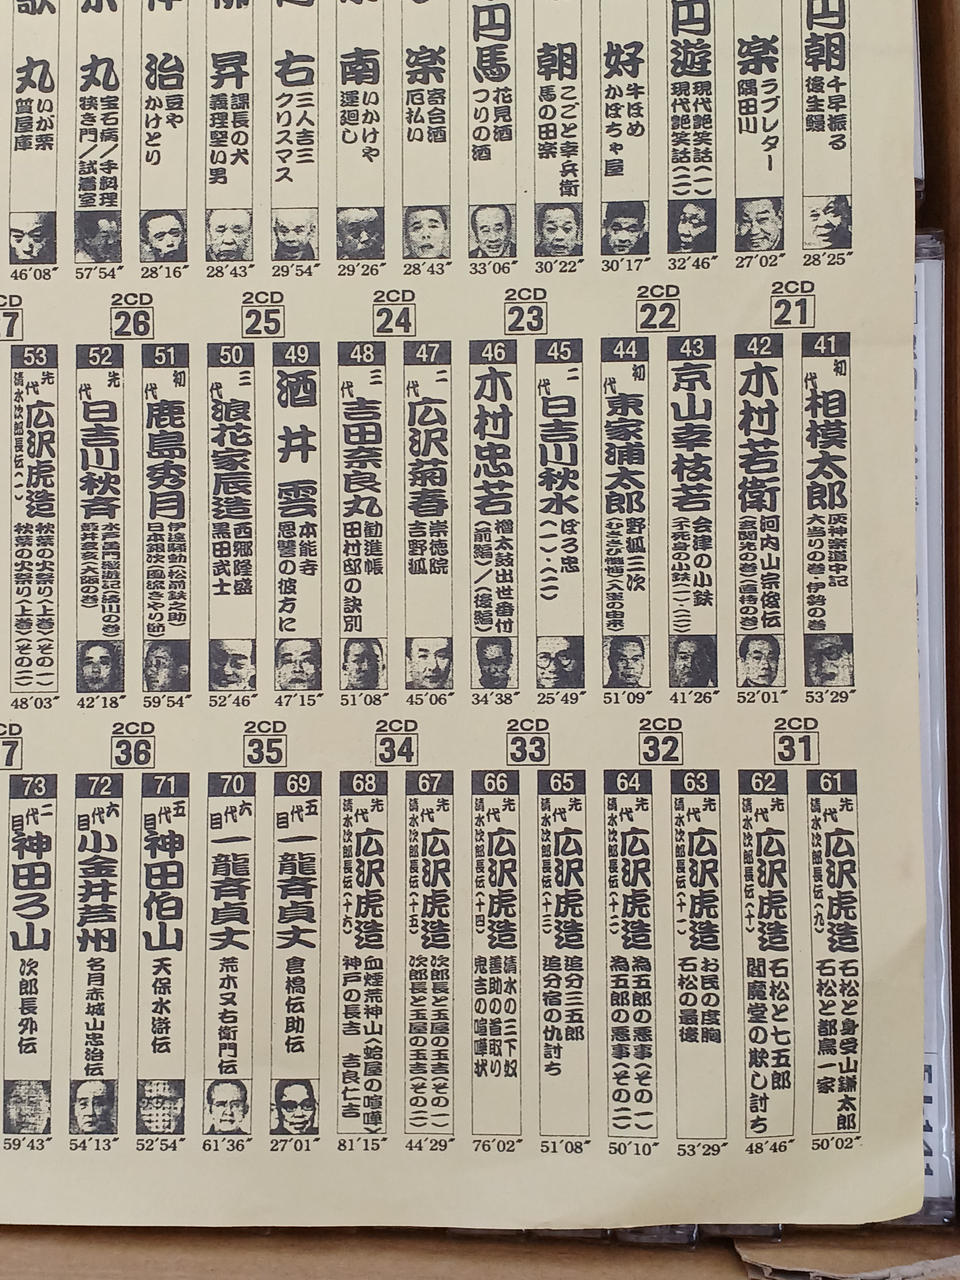 円朝
千早振る
後生鰻
28′25″
楽
ラブレター
隅田川
27′02″
円遊
現代艶笑話(一)
現代艶笑話(二)
32′46″
好
牛ほめ
かぼちゃ屋
30′17″
朝
こごと幸兵衛
馬の田楽
30′22″
円馬
花見酒
つりの酒
33′06″
楽
寄合酒
厄払い
28′43″
南
いかけや
運廻し
29′26″
右
三人吉三
クリスマス
29′54″
昇
課長の犬
義理堅い男
28′43″
治
豆や
かけとり
28′16″
丸
宝石病/手料理
狭き門/試着室
57′54″
丸
いが栗
質屋庫
46′08″
2CD
21
41
初代
相模太郎
灰神楽道中記
大当りの巻・伊勢の巻
53′29″
42
木村若衛
河内山宗俊伝
52′01″
2CD
22
43
京山幸枝若
会津の小鉄
(不死身の小鉄(一・二))
41′26″
44
初代
東家浦太郎
野狐三次
51′09″
2CD
23
45
二代
日吉川秋水
ぼろ忠
(一)・(二)
25′49″
46
木村忠若
櫓太鼓出世番付
(前編)/(後編)
34′38″
2CD
24
47
二代
広沢菊春
崇徳院
吉野狐
45′06″
48
三代
吉田奈良丸
勧進帳
田村邸の訣別
51′08″
2CD
25
49
酒井雲
本能寺
恩讐の彼方に
47′15″
50
三代
浪花家辰造
西郷隆盛
黒田武士
52′46″
2CD
26
51
初代
鹿島秀月
伊達騒動(松前鉄之助)
59′54″
52
先代
日吉川秋斉
藍井玄玄(大阪の巻)
42′18″
CD
27
53
先代
広沢虎造
清水次郎長伝(一)
秋葉の火祭り(上巻)(その一)
秋葉の火祭り(上巻)(その二)
48′03″
2CD
31
61
先代
広沢虎造
清水次郎長伝(九)
石松と身受山鎌太郎
石松と都鳥一家
50′02″
62
先代
広沢虎造
清水次郎長伝(十)
石松と七五郎
閻魔堂の欺し討ち
48′46″
2CD
32
63
先代
広沢虎造
清水次郎長伝(十一)
お民の度胸
石松の最後
53′29″
64
先代
広沢虎造
清水次郎長伝(十二)
為五郎の悪事(その一)
為五郎の悪事(その二)
50′10″
2CD
33
65
先代
広沢虎造
清水次郎長伝(十三)
追分三五郎
追分宿の仇討ち
51′08″
66
先代
広沢虎造
清水次郎長伝(十四)
清水の三下奴
善助の首取り
鬼吉の喧嘩状
76′02″
2CD
34
67
先代
広沢虎造
清水次郎長伝(十五)
次郎長と玉屋の玉吉(その一)
次郎長と玉屋の玉吉(その二)
44′29″
68
先代
広沢虎造
清水次郎長伝(十六)
血煙荒神山(蛤屋の喧嘩)
神戸の長吉 吉良仁吉
81′15″
2CD
35
69
五代目
一龍斉貞丈
倉橋伝助伝
27′01″
70
六代目
一龍斉貞丈
荒木又右衛門伝
61′36″
2CD
36
71
五代目
神田伯山
天保水滸伝
52′54″
72
六代目
小金井芦州
名月赤城山忠治伝
54′13″
CD
37
73
二代目
神田ろ山
次郎長外伝
59′43″